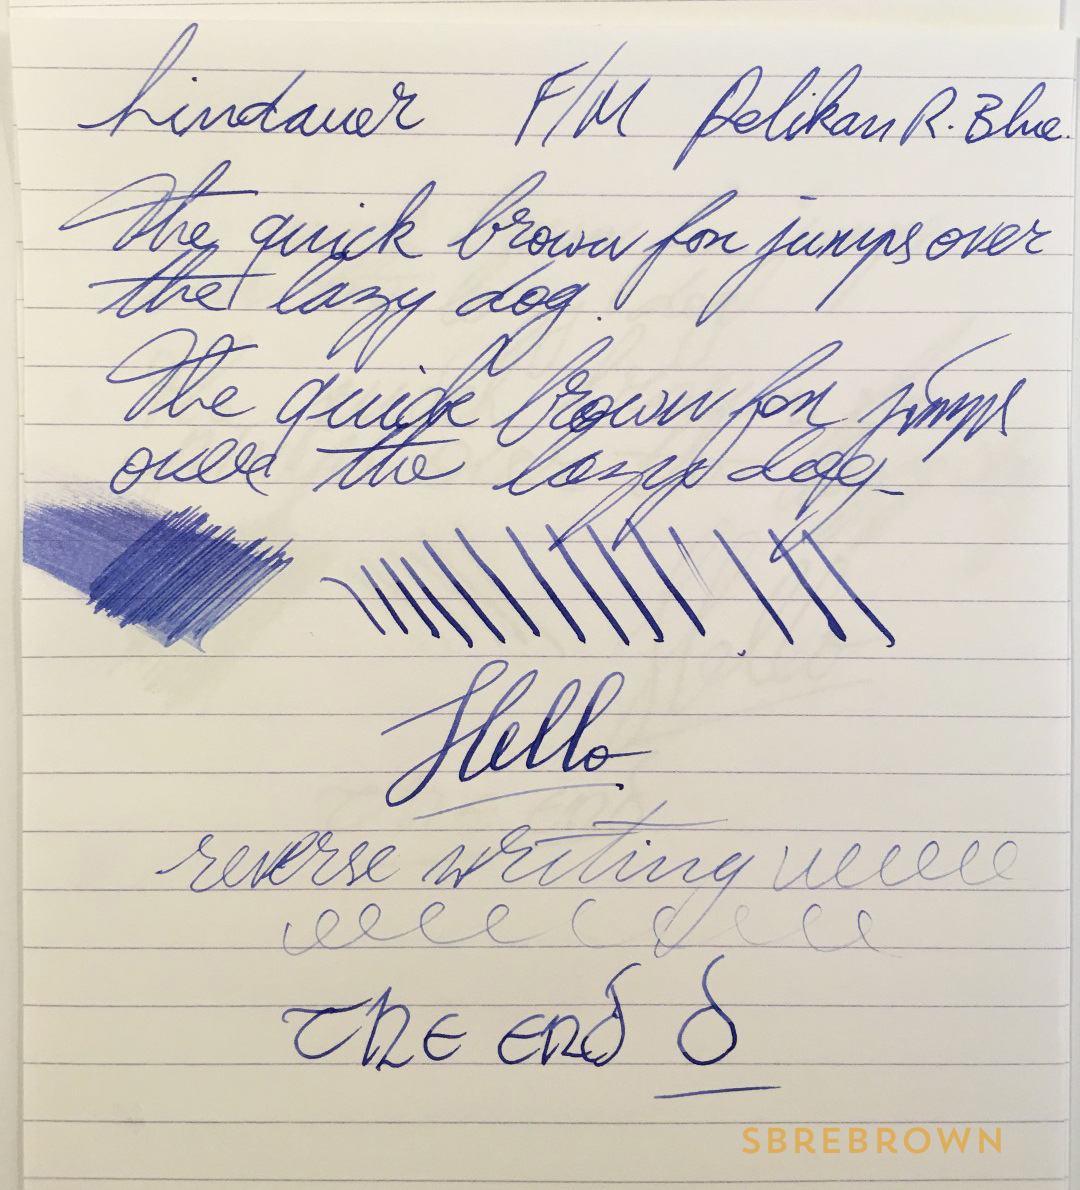 Lindauer F/M Pelikan R. Blue.
The quick brown fox jumps over
the lazy dog.
The quick brown fox jumps
over the lazy dog
Hello
reverse writing
The end
SBREBROWN